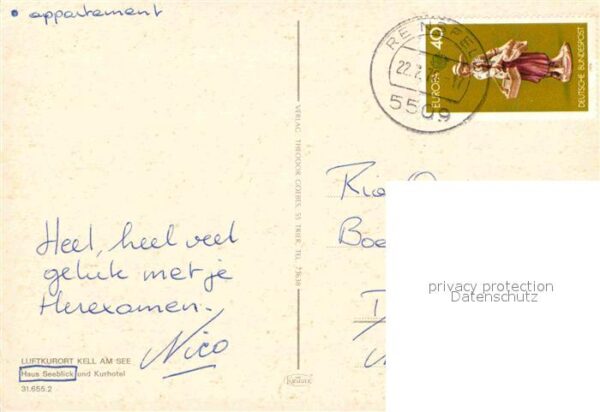 • appartement
Heel, heel veel
geluk met je
Herexamen.
Nico
LUFTKURORT KELL AM SEE
Haus Seeblick und Kurhotel
31.655.2
VERLAG THEODOR GOEBES, 55 TRIER, TEL. 73638
5509
EUROPA 40
DEUTSCHE BUNDESPOST
Ria
privacy protection
Datenschutz